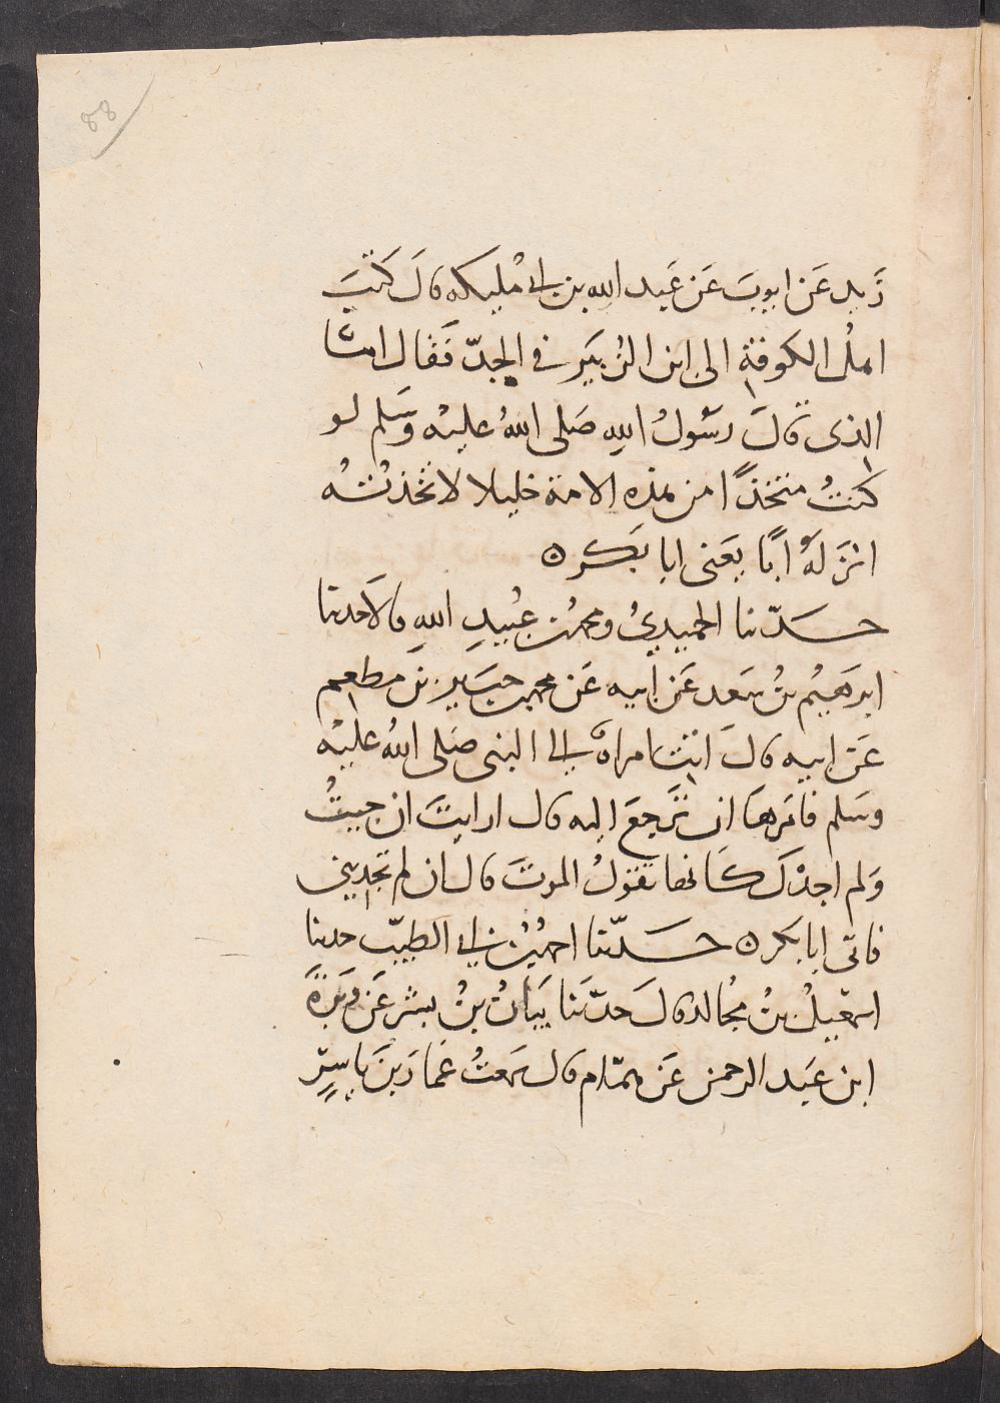 88
زَيد عَن ايوبَ عَن عَبد الله بن ابى مُليكه قالَ كَتَبَ
اهلُ الكوفةِ الى ابن الزُبَير فى الجدّ فَقال امّا
الذى قالَ رسُولُ اللهِ صَلى اللهُ عليْه وسَلم لو
كنتُ متخذًا من هذه الامة خليلا لاتخذتُه
انزَلَهُ ابًا يَعنى ابا بَكر ه
حَدّثنا الحميديُ ومحمدُ بن عُبيدِ اللهِ قالاَ حدثنا
ابرَهيمُ بنُ سَعد عَن ابيه عَن محمد بن جبَير بن مطعم
عَن ابيه قالَ اتت امراةٌ الى النبى صَلى اللهُ عليْه
وسَلم فامَرهَا ان تَرجعَ اليه قال ارايتَ ان جيتُ
وَلم اجدْكَ كَانها تقولُ الموتَ قال ان لم تجدينى
فاتى ابا بكر ه حَدّثنا احمدُ بن ابى الطيبّ حدثنا
اسمعيلُ بنُ مجُالد قالَ حدّثَنا بَيَانُ بنُ بشر عَن وَبَرَةَ
ابن عَبد الرحمن عَن همّام قال سَمعتُ عَمارَ بنَ يَاسِرٍ